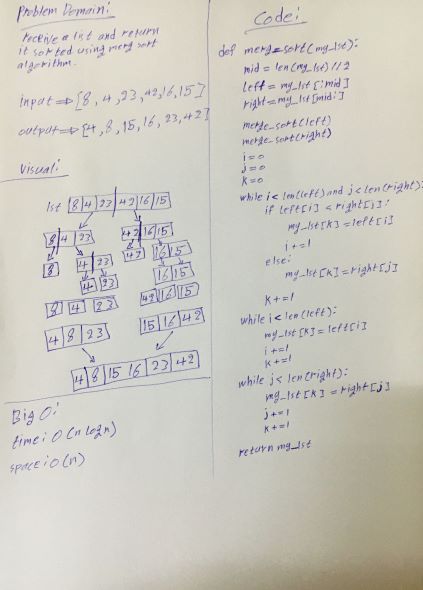 Problem Domain:
receive a lst and return
it sorted using merg sort
algorithm.
input => [8, 4, 23, 42, 16, 15]
output => [4, 8, 15, 16, 23, 42]
Visual:
lst 8 4 23 42 16 15
8 4 23 42 16 15
8 4 23 42 16 15
4 23 16 15
8 4 23 42 16 15
4 8 23 15 16 42
4 8 15 16 23 42
Big O:
time: O(n log n)
space: O(n)
Code:
def merge-sort(my_lst):
mid = len(my_lst)//2
left = my_lst[:mid]
right = my_lst[mid:]
merge_sort(left)
merge_sort(right)
i=0
j=0
k=0
while i < len(left) and j < len(right):
if left[i] < right[j]:
my_lst[k] = left[i]
i+=1
else:
my_lst[k] = right[j]
k+=1
while i < len(left):
my_lst[k] = left[i]
i+=1
k+=1
while j < len(right):
my_lst[k] = right[j]
j+=1
k+=1
return my_lst